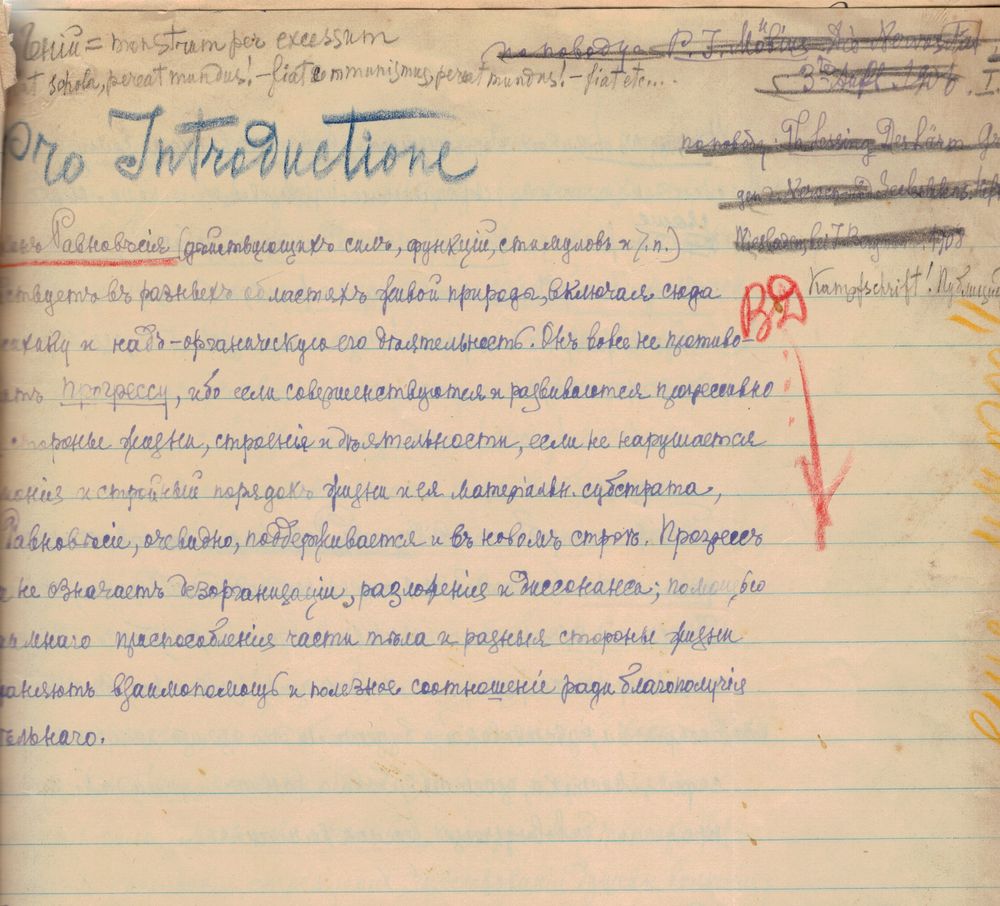 ченій = monstrum per excessum
at schola, pereat mundus! – fiat communismus, pereat mundus! – fiat etc...
по поводу P. J. Möbius. Die Nervosität,
3te Aufl. 1906. I.
по поводу: Th. Lessing Der Lärm
Wiesbaden, bei J. Bergmann. 1908
Kampfschrift!
pro Introductione
Равновѣсія (дѣйствующихъ силъ, функцій, стимуловъ и т. п.)
ствуетъ въ разныхъ областяхъ живой природы, включая сюда
и надъ-органическую его дѣятельность. Онъ вовсе не противо-
Прогрессу, ибо если совершенствуются и развиваются прогрессивно
стороны жизни, строенія и дѣятельности, если не нарушается
и стройный порядокъ жизни и ея матеріальн. субстрата,
Равновѣсіе, очевидно, поддерживается и въ новомъ строѣ. Прогрессъ
не означаетъ дезорганизаціи, разложенія и диссонанса; помощью
приспособленія части тѣла и разныя стороны жизни
взаимопомощь и полезное соотношеніе ради благополучія
тельнаго.
ВД